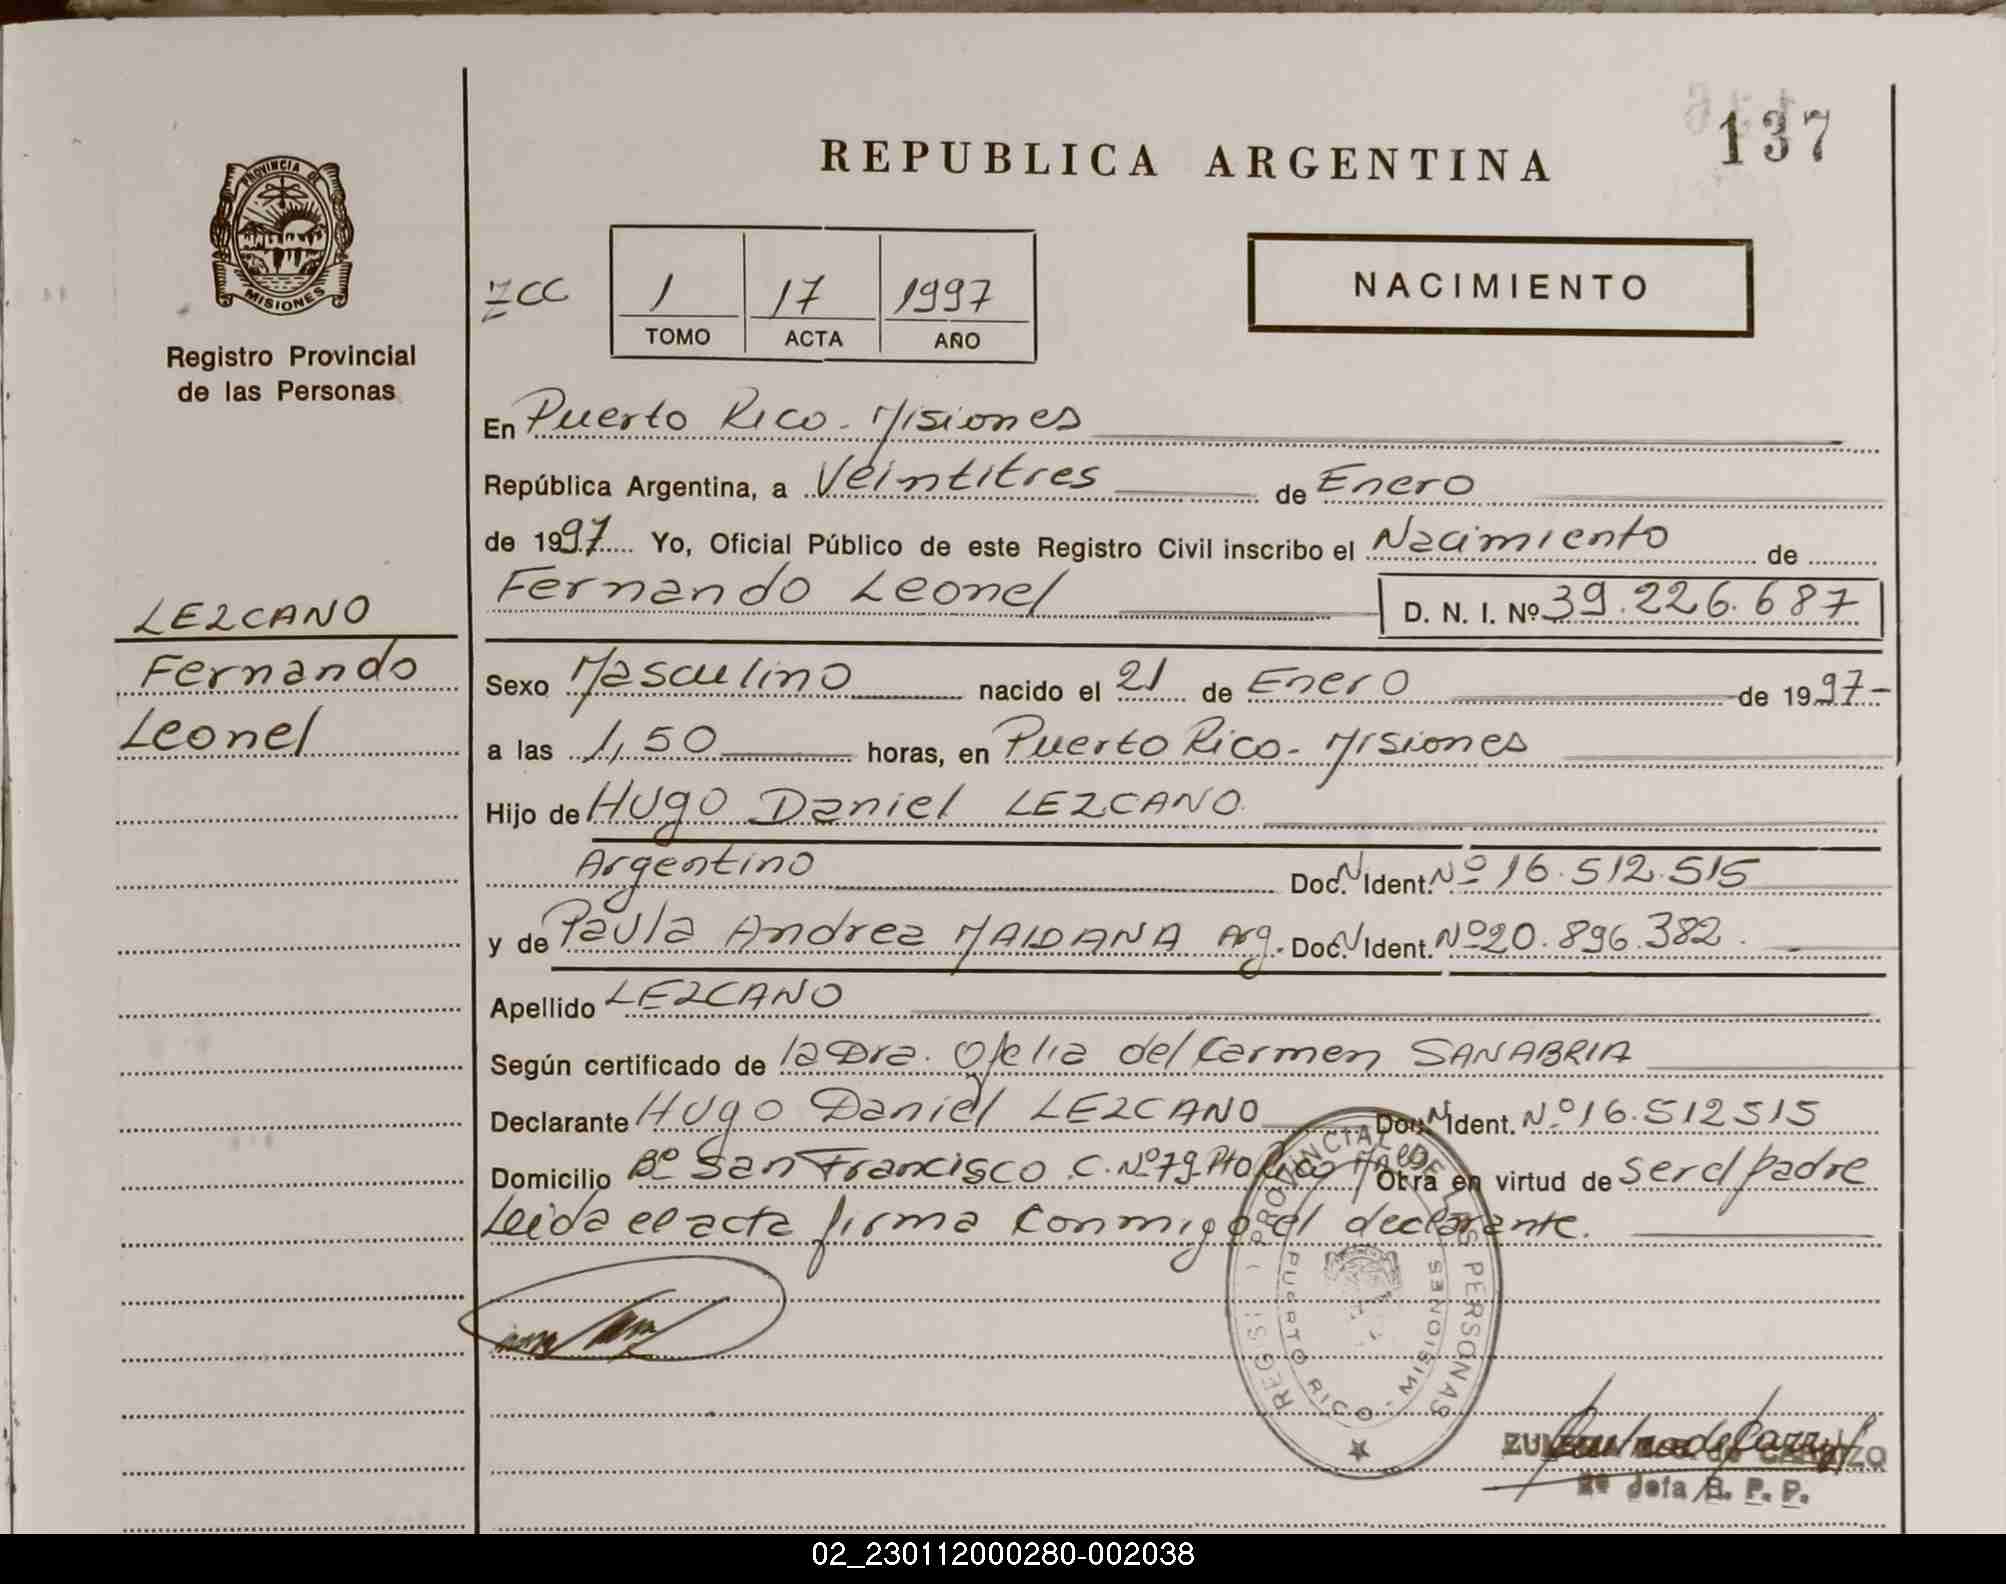 137
REPUBLICA ARGENTINA
PROVINCIA DE
MISIONES
Registro Provincial
de las Personas
ICC
1 17 1997
TOMO ACTA AÑO
NACIMIENTO
En Puerto Rico - Misiones
República Argentina, a Veintitres de Enero
de 1997 Yo, Oficial Público de este Registro Civil inscribo el Nacimiento de
Fernando Leonel D. N. I. Nº 39.226.687
LEZCANO
Fernando
Leonel
Sexo Masculino nacido el 21 de Enero de 1997-
a las 1,50 horas, en Puerto Rico - Misiones
Hijo de Hugo Daniel LEZCANO
Argentino Doc. N Ident. Nº 16.512.515
y de Paula Andrea MAIDANA Arg. Doc. N Ident. Nº 20.896.382.
Apellido LEZCANO
Según certificado de la Dra. Ofelia del Carmen SANABRIA
Declarante Hugo Daniel LEZCANO Doc. N Ident. Nº 16.512515
Domicilio Bº San Francisco C. Nº 79 Pto Rico Obra en virtud de ser el padre
Leida el acta firma conmigo el declarante.
PROVINCIAL DE LAS PERSONAS
PUERTO RICO - MISIONES
R. P. P.
02_230112000280-002038